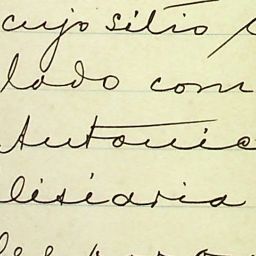 cujo sitio
lado com
Antonio
lisiaria